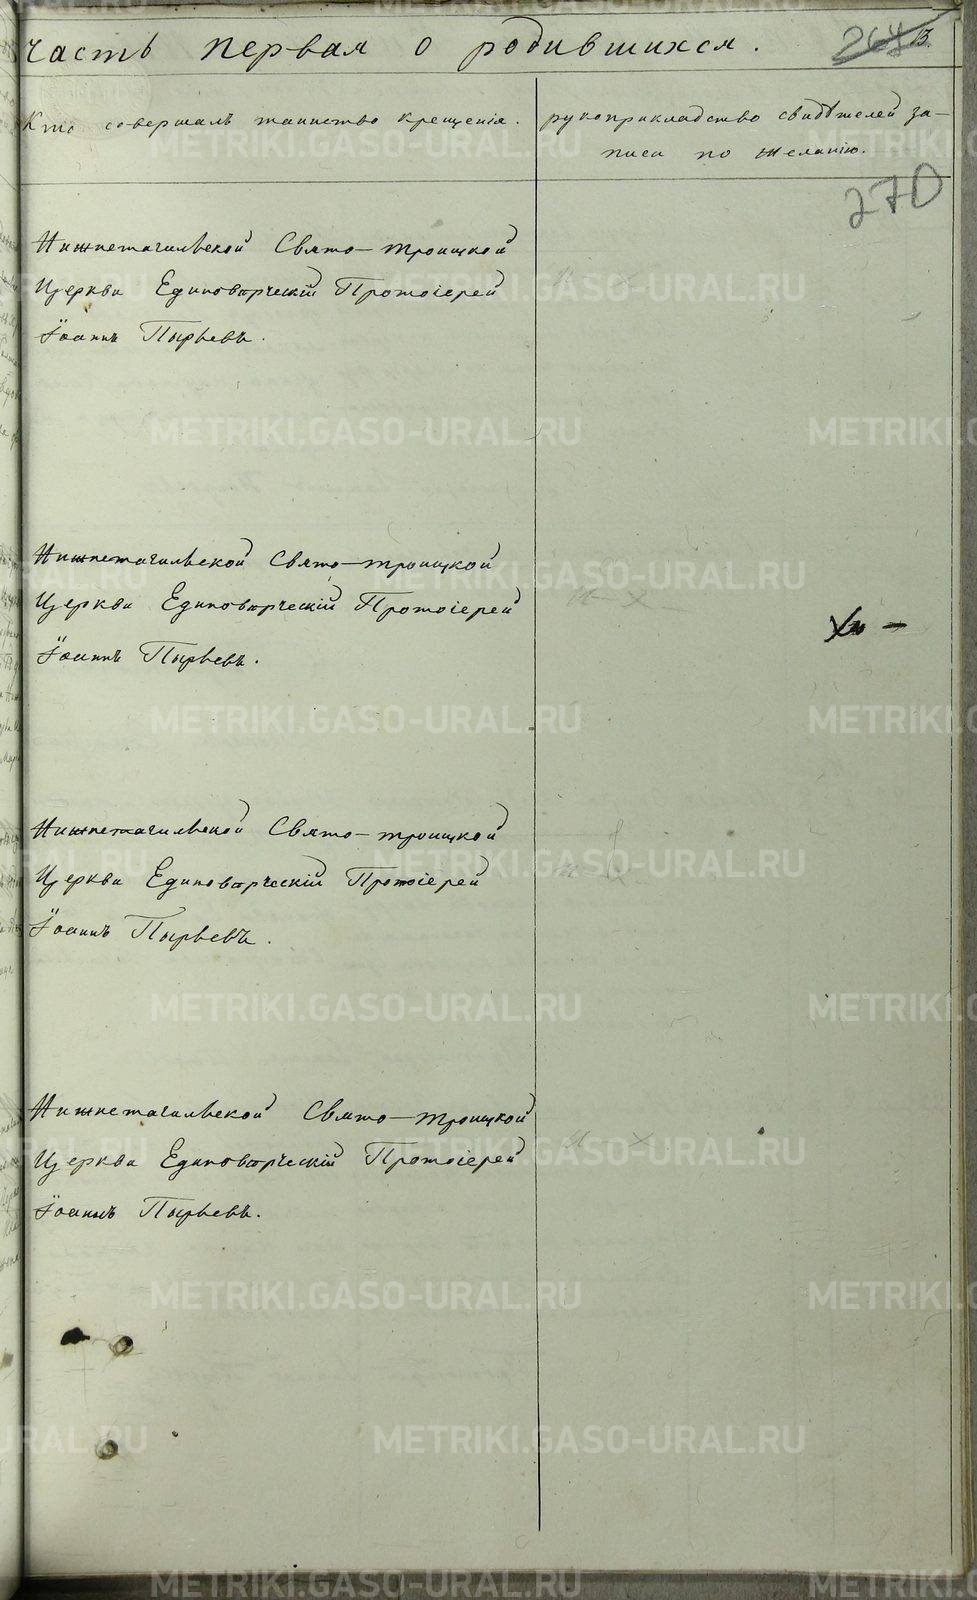 часть первая о родившихся.
13.
270
Кто совершалъ таинство крещенія.
рукоприкладство свидѣтелей за-
писи по желанію.
Нижнетагильской Свято-троицкой
Церкви Единовѣрческій Протоіерей
Іоаннъ Пырьевъ.
Нижнетагильской Свято-троицкой
Церкви Единовѣрческій Протоіерей
Іоаннъ Пырьевъ.
Нижнетагильской Свято-троицкой
Церкви Единовѣрческій Протоіерей
Іоаннъ Пырьевъ.
Нижнетагильской Свято-троицкой
Церкви Единовѣрческій Протоіерей
Іоаннъ Пырьевъ.
METRIKI.GASO-URAL.RU